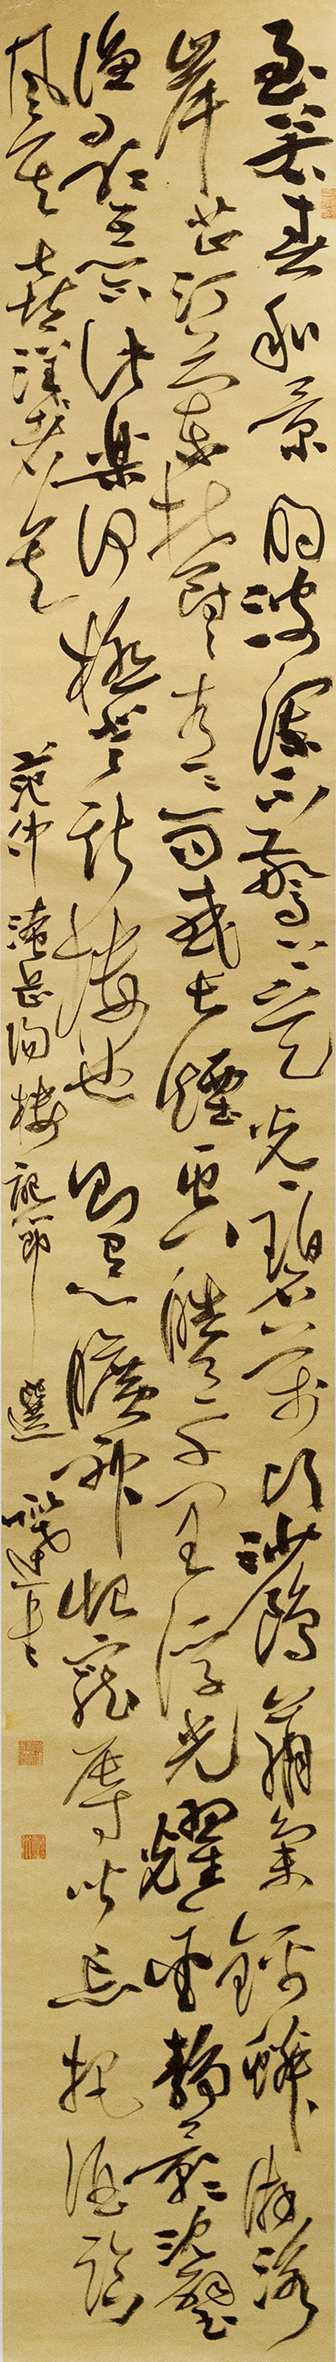 至若春和景明波瀾不驚上下天光一碧万頃沙鷗翔集錦鱗游泳
岸芷汀蘭郁郁青青而或長煙一空皓月千里浮光耀金靜影沈璧
漁歌互答此樂何極登斯樓也則有心曠神怡寵辱皆忘把酒臨
風其喜洋洋者矣
范仲淹岳陽樓記節選